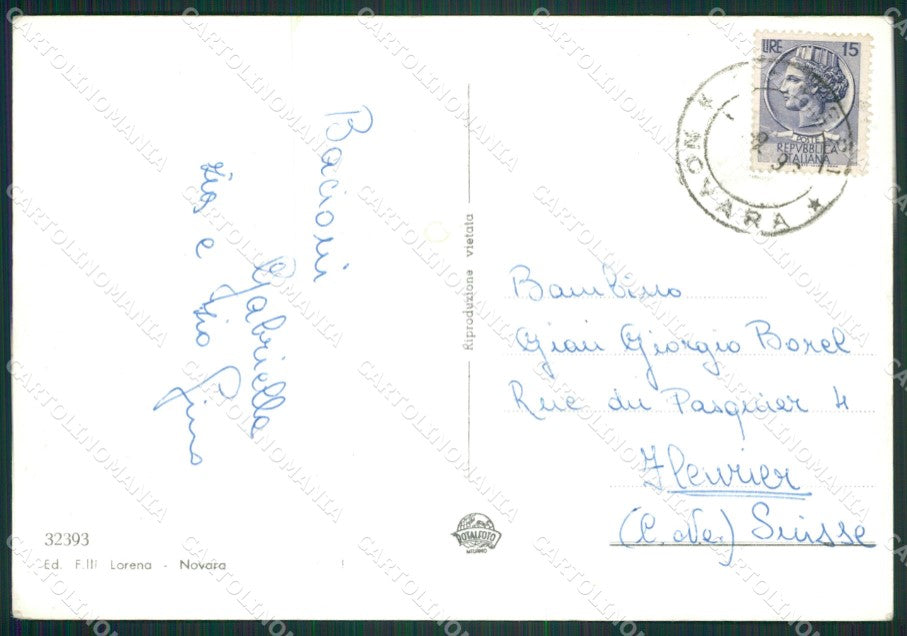 Bacioni
Gabriella
zia e zio Gino
Riproduzione vietata
LIRE 15
POSTE
REPVBBLICA
ITALIANA
NOVARA
Bambino
Gian Giorgio Borel
Rue du Pasquier 4
Fleurier
(C. Ne.) Suisse
32393
Ed. F.lli Lorena - Novara
ROTALFOTO
MILANO
CARTOLINOMANIA